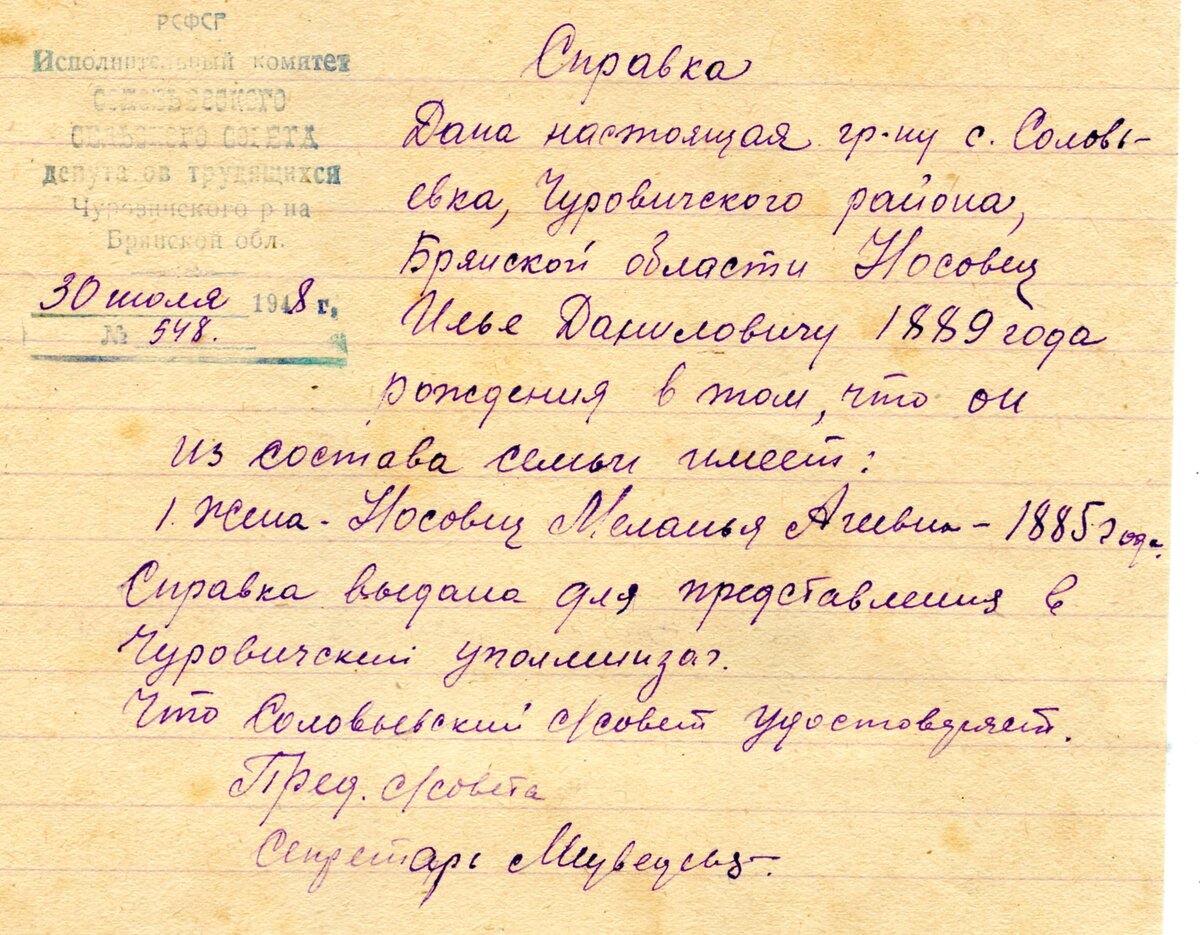 РСФСР
Исполнительный комитет
Соловьевского
сельского совета
депутатов трудящихся
Чуровичского р-на
Брянской обл.
30 июля 1948 г.
№ 548.
Справка
Дана настоящая гр-ну с. Соловь-
евка, Чуровичского района,
Брянской области Носовец
Илье Даниловичу 1889 года
рождения в том, что он
из состава семьи имеет:
1. Жена - Носовец Меланья Агеевна - 1885 года.
Справка выдана для представления в
Чуровичский уполминзаг.
Что Соловьевский с/совет удостоверяет.
Пред. с/совета
Секретарь